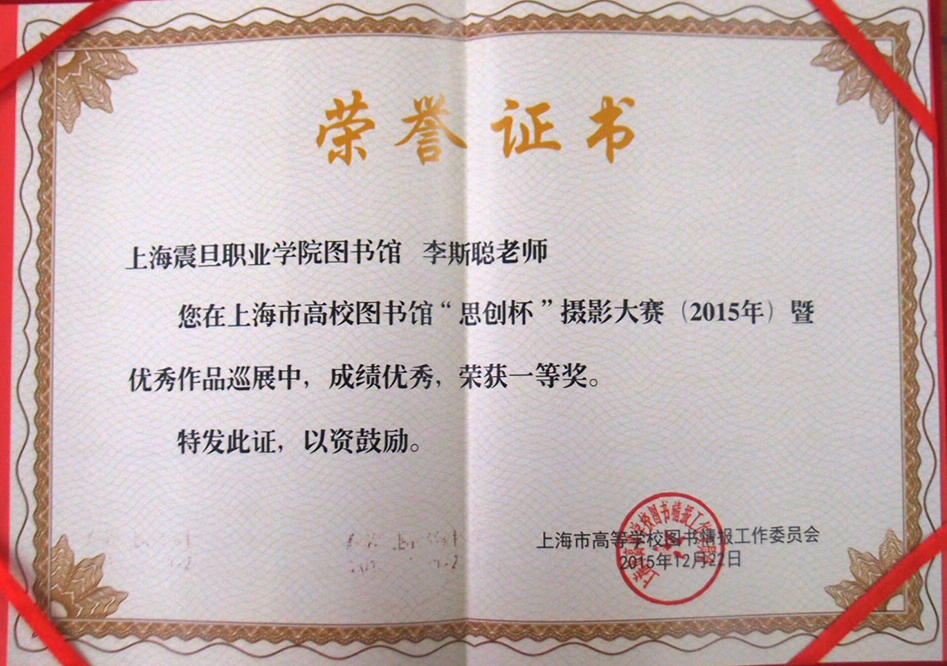 荣誉证书
上海震旦职业学院图书馆 李斯聪老师
您在上海市高校图书馆“思创杯”摄影大赛(2015年)暨
优秀作品巡展中,成绩优秀,荣获一等奖。
特发此证,以资鼓励。
上海市高等学校图书情报工作委员会
2015年12月22日